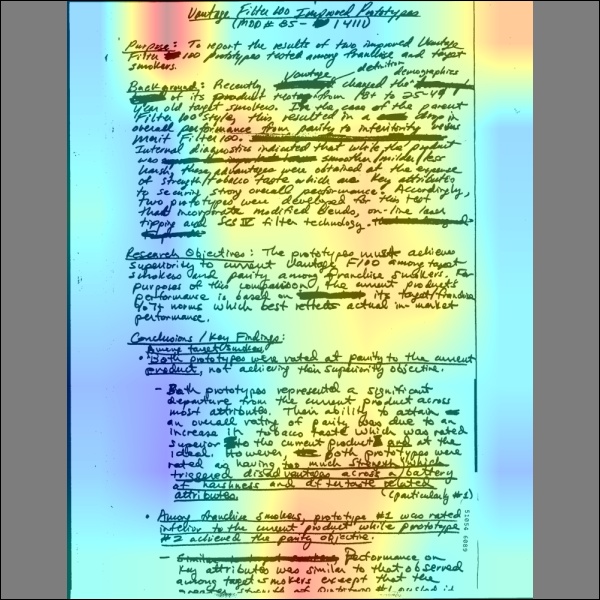 Vantage Filter 100 Improved Prototypes
(MDD # 85- 14111)
Purpose: To report the results of two improved Vantage
Filter 100 prototypes tested among franchise and target
smokers.
Vantage definition
demographics
Background: Recently changed the
of its product from 18+ to 25-49
year old target smokers. In the case of the parent
Filter 100 style, this resulted in a drop in
overall performance from parity to inferiority versus
Merit Filter 100.
Internal diagnostics indicated that while the product
was smoother/milder/less
harsh, those advantages were obtained at the expense
of strength/tobacco taste which are key attributes
to securing strong overall performance. Accordingly,
two prototypes were developed for this test
that incorporate modified blends, on-line laser
tipping and SCS IV filter technology.
Research Objectives: The prototypes must achieve
superiority to current Vantage F100 among target
smokers and parity among franchise smokers. For
purposes of this comparison, the current product's
performance is based on its target/franchise
% It norms which best reflects actual in-market
performance.
Conclusions / Key Findings:
Among target smokers
• Both prototypes were rated at parity to the current
product, not achieving their superiority objective.
- Both prototypes represented a significant
departure from the current product across
most attributes. Their ability to attain
an overall rating of parity was due to an
increase in tobacco taste which was rated
superior to the current product and at the
ideal. However both prototypes were
rated as having too much strength which
triggered disadvantages across a battery
of harshness and aftertaste related
attributes. (particularly #1)
• Among franchise smokers, prototype #1 was rated
inferior to the current product while prototype
#2 achieved the parity objective.
- Performance on
key attributes was similar to that observed
among target smokers except that the
greater strength of prototype #1 resulted in
51054 6089